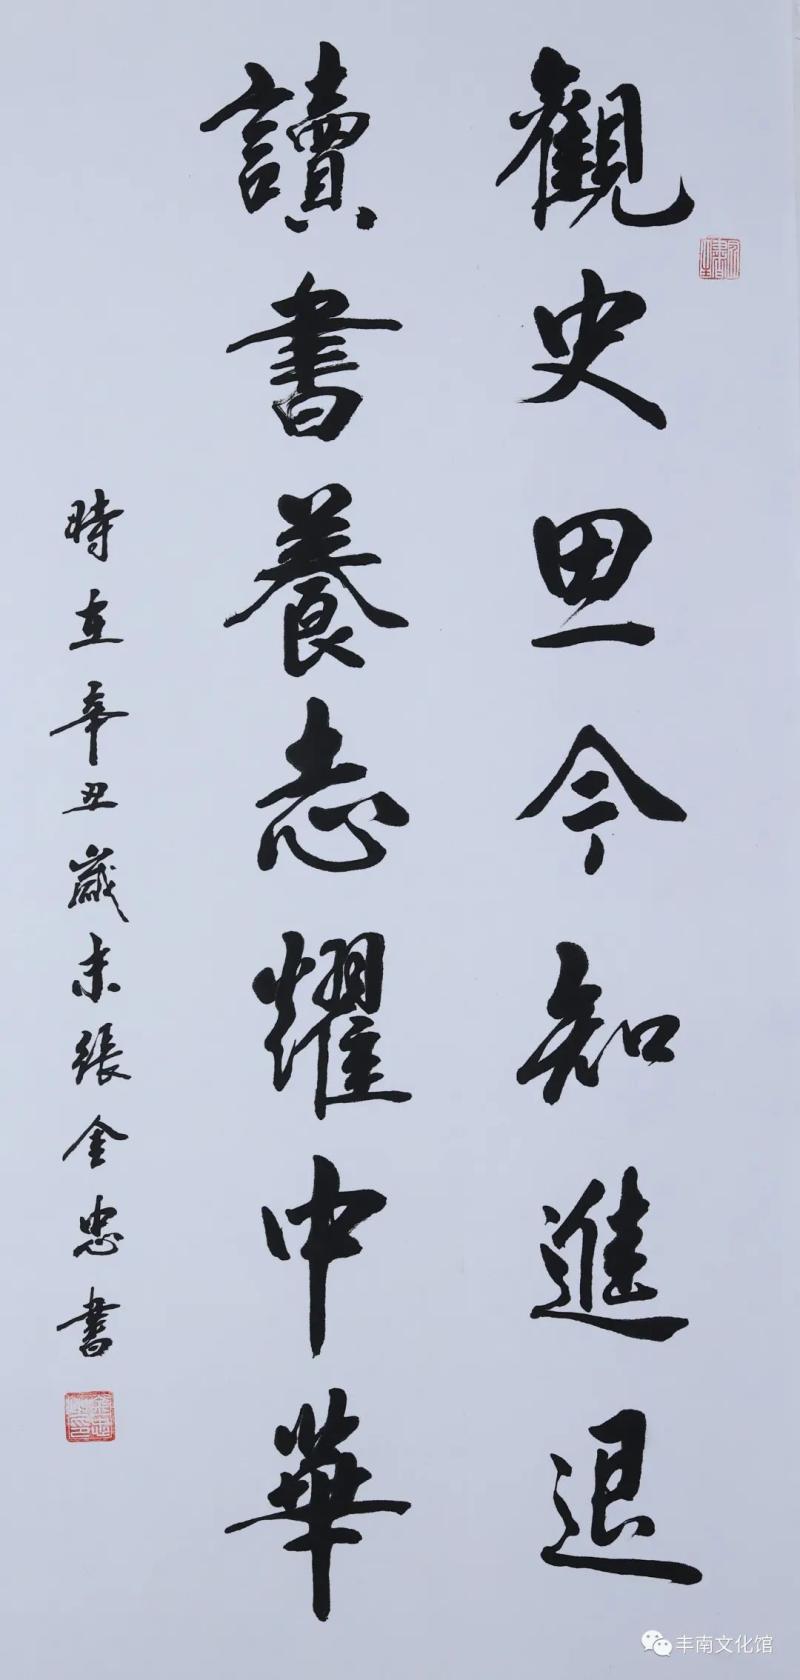 觀史思今知進退
讀書養志耀中華
時在辛丑歲末張金忠書
丰南文化馆